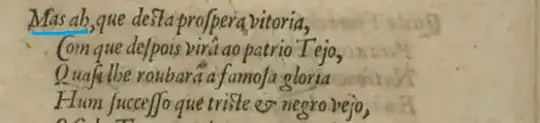 Mas ah, que deſta proſpera vitoria,
Com que deſpois virâ ao patrio Tejo,
Quaſi lhe roubarâ a famoſa gloria
Hum ſucceſſo que triſte & negro vejo,